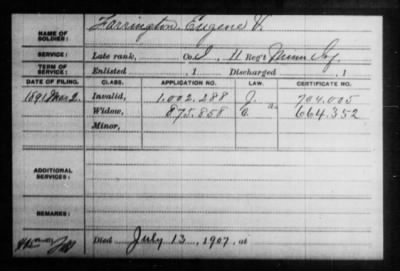 NAME OF SOLDIER: Farrington, Eugene V.
SERVICE: Late rank, Co. I, 11 Reg't Minn Inf.
TERM OF SERVICE: Enlisted , 1 Discharged , 1
DATE OF FILING. CLASS. APPLICATION NO. LAW. CERTIFICATE NO.
1891 Mar 2. Invalid, 1.002.288 J. 704.005
Widow, 875.858 C. a. 664.352
Minor,
ADDITIONAL SERVICES:
REMARKS:
Died July 13, 1907, at